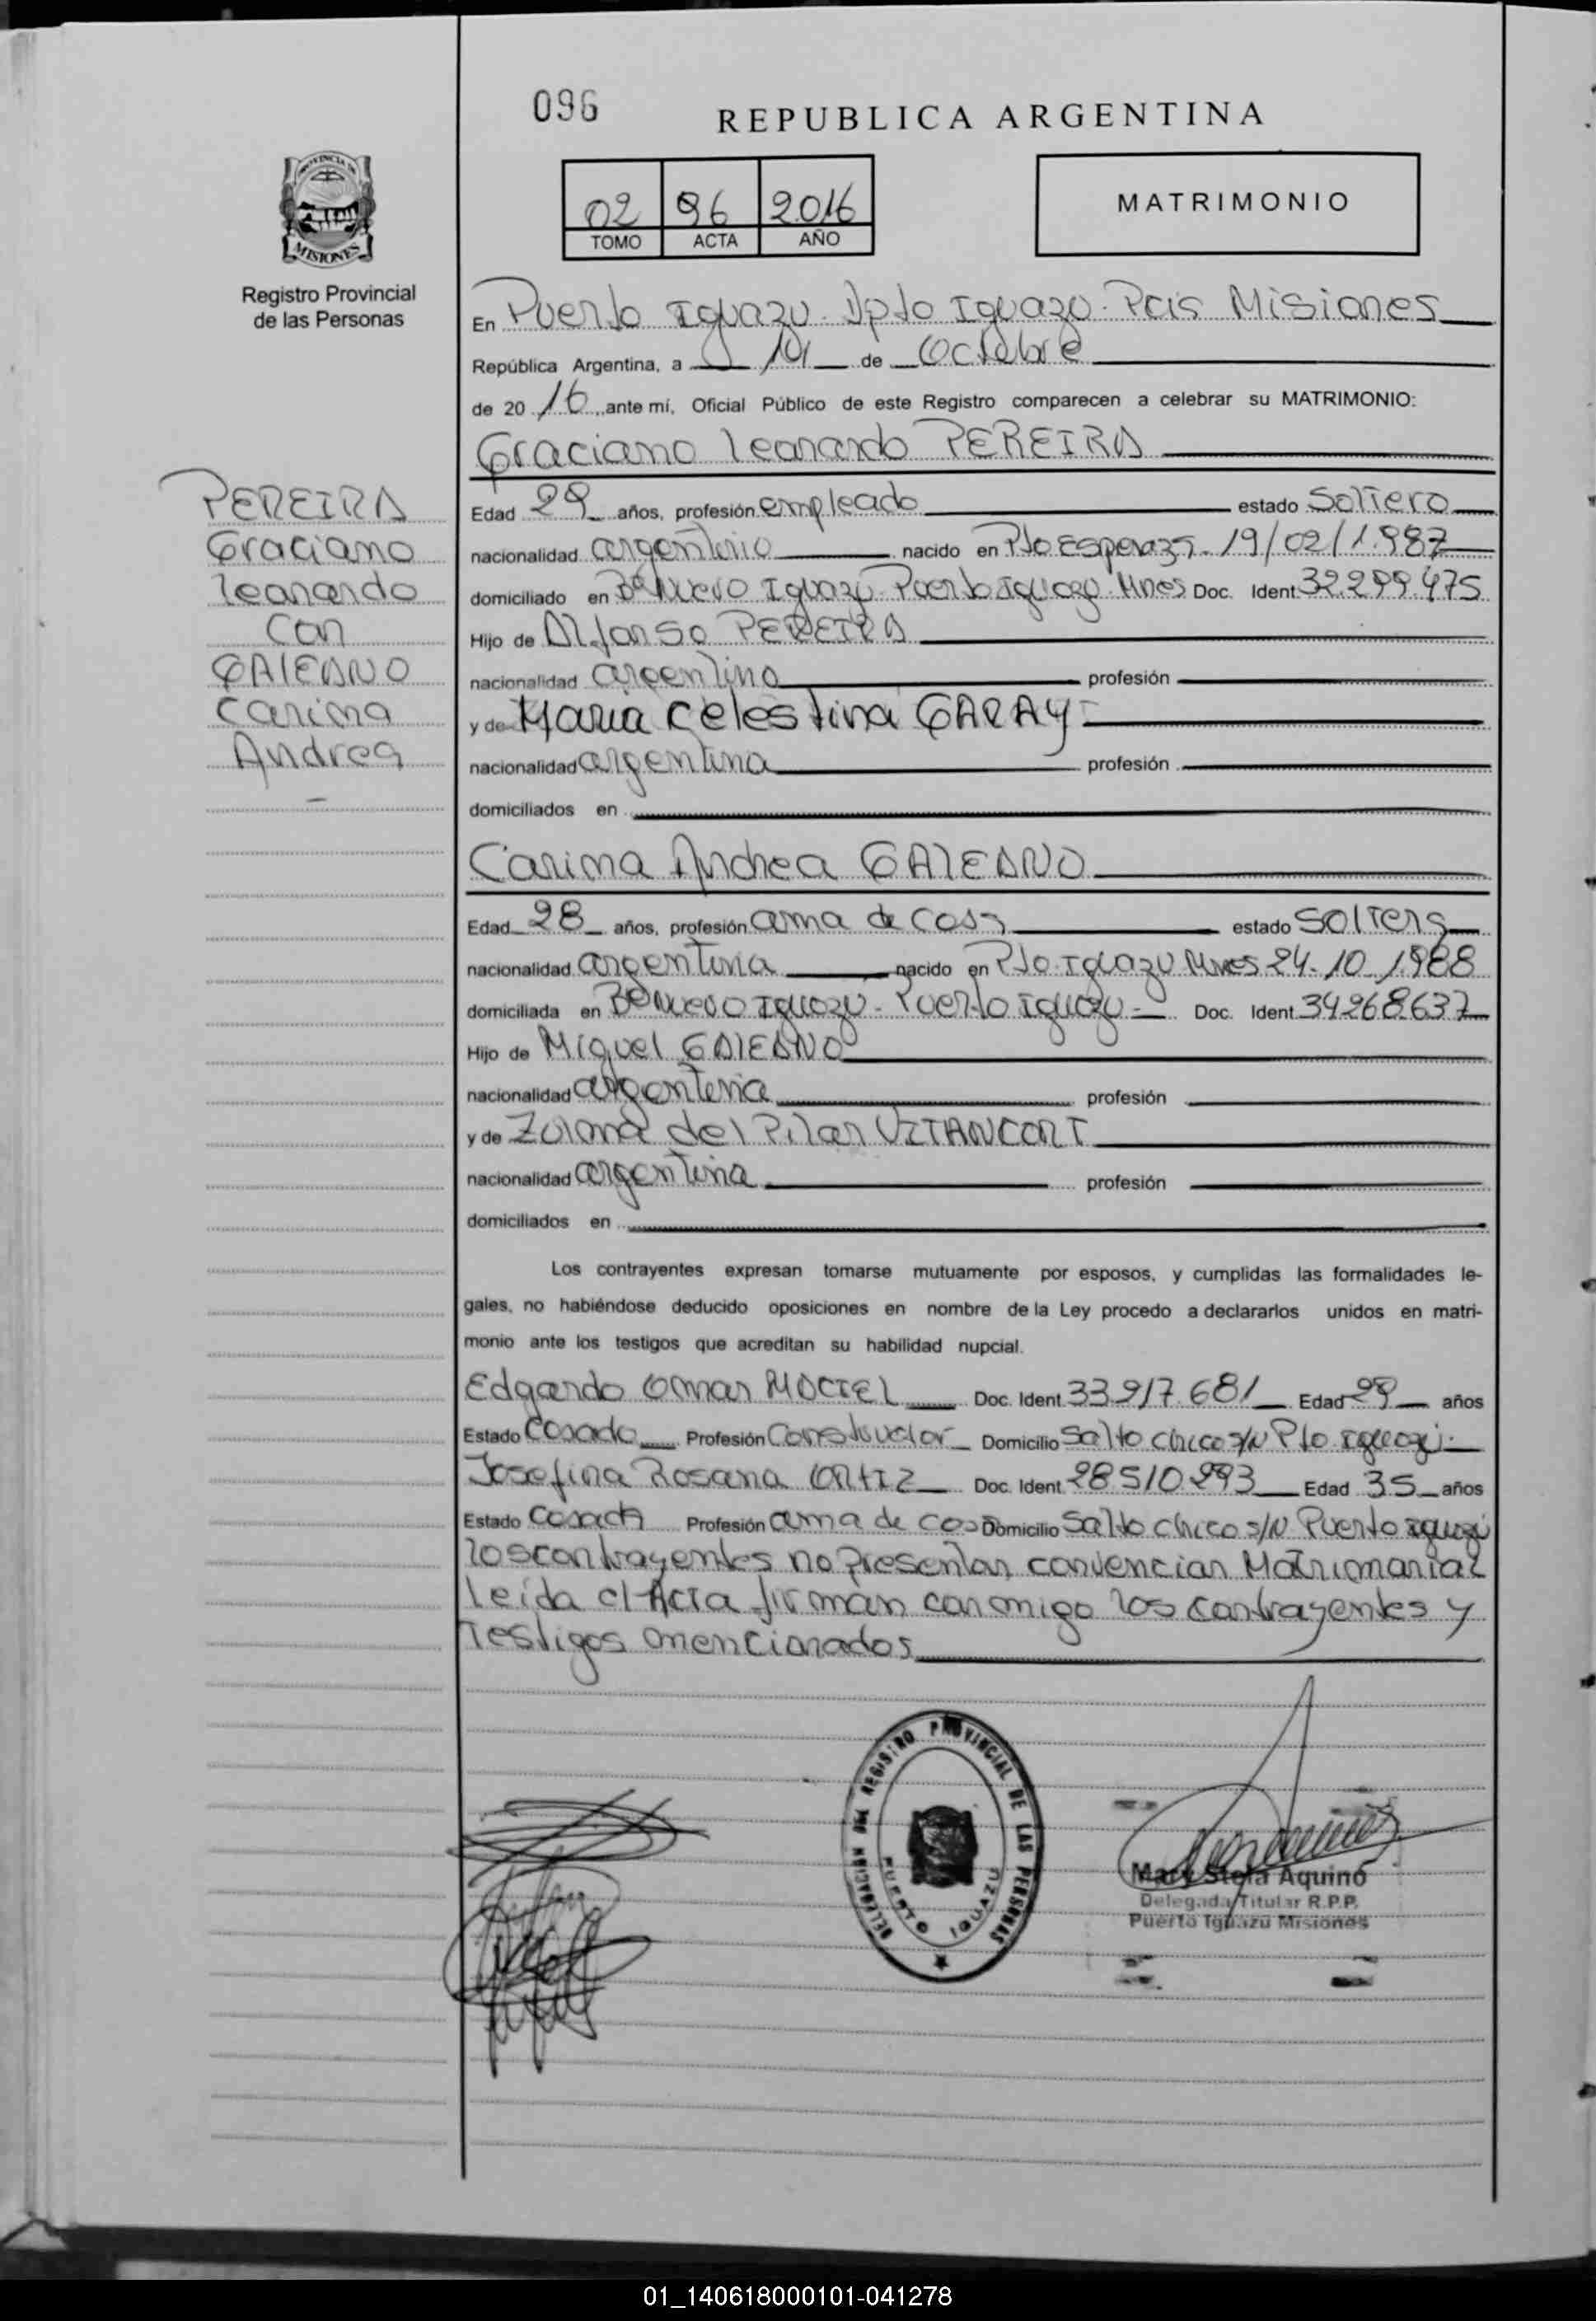 096
REPUBLICA ARGENTINA
PROVINCIA DE
MISIONES
Registro Provincial
de las Personas
02 96 2016
TOMO ACTA AÑO
MATRIMONIO
En Puerto Iguazu. Dpto Iguazu. Pcis Misiones
República Argentina, a 10 de Octubre
de 20 16 ante mí, Oficial Público de este Registro comparecen a celebrar su MATRIMONIO:
Graciano Leonardo PEREIRA
PEREIRA
Graciano
Leonardo
Con
GALEANO
Carina
Andrea
Edad 29 años, profesión empleado estado Soltero
nacionalidad argentino nacido en Pto Esperanza. 19/02/1.987
domiciliado en Bº Nuevo Iguazu. Puerto Iguazu. Mnes Doc. Ident. 32.299.475
Hijo de Alfonso PEREIRA
nacionalidad argentino profesión
y de Maria Celestina GARAY
nacionalidad argentina profesión
domiciliados en
Carina Andrea GALEANO
Edad 28 años, profesión ama de casa estado Soltera
nacionalidad argentina nacido en Pto. Iguazu Mnes 24.10.1988
domiciliada en Bº Nuevo Iguazu - Puerto Iguazu - Doc. Ident. 34.268.637
Hijo de Miguel GALEANO
nacionalidad argentina profesión
y de Zulma del Pilar VITANCORT
nacionalidad argentina profesión
domiciliados en
Los contrayentes expresan tomarse mutuamente por esposos, y cumplidas las formalidades le-
gales, no habiéndose deducido oposiciones en nombre de la Ley procedo a declararlos unidos en matri-
monio ante los testigos que acreditan su habilidad nupcial.
Edgardo Omar MACIEL Doc. Ident. 33.917.681 Edad 29 años
Estado Casado Profesión Constructor Domicilio Salto Chico s/N Pto Iguazu.
Josefina Rosana ORTIZ Doc. Ident. 28510.293 Edad 35 años
Estado Casada Profesión ama de casa Domicilio Salto Chico s/N Puerto Iguazu
los contrayentes no presentan convencion Matrimonial
Leída el Acta firman conmigo los contrayentes y
Testigos mencionados
DELEGACION DEL REGISTRO PROVINCIAL DE LAS PERSONAS
PUERTO IGUAZU
Mary Stela Aquino
Delegada Titular R.P.P.
Puerto Iguazu Misiones
01_140618000101-041278